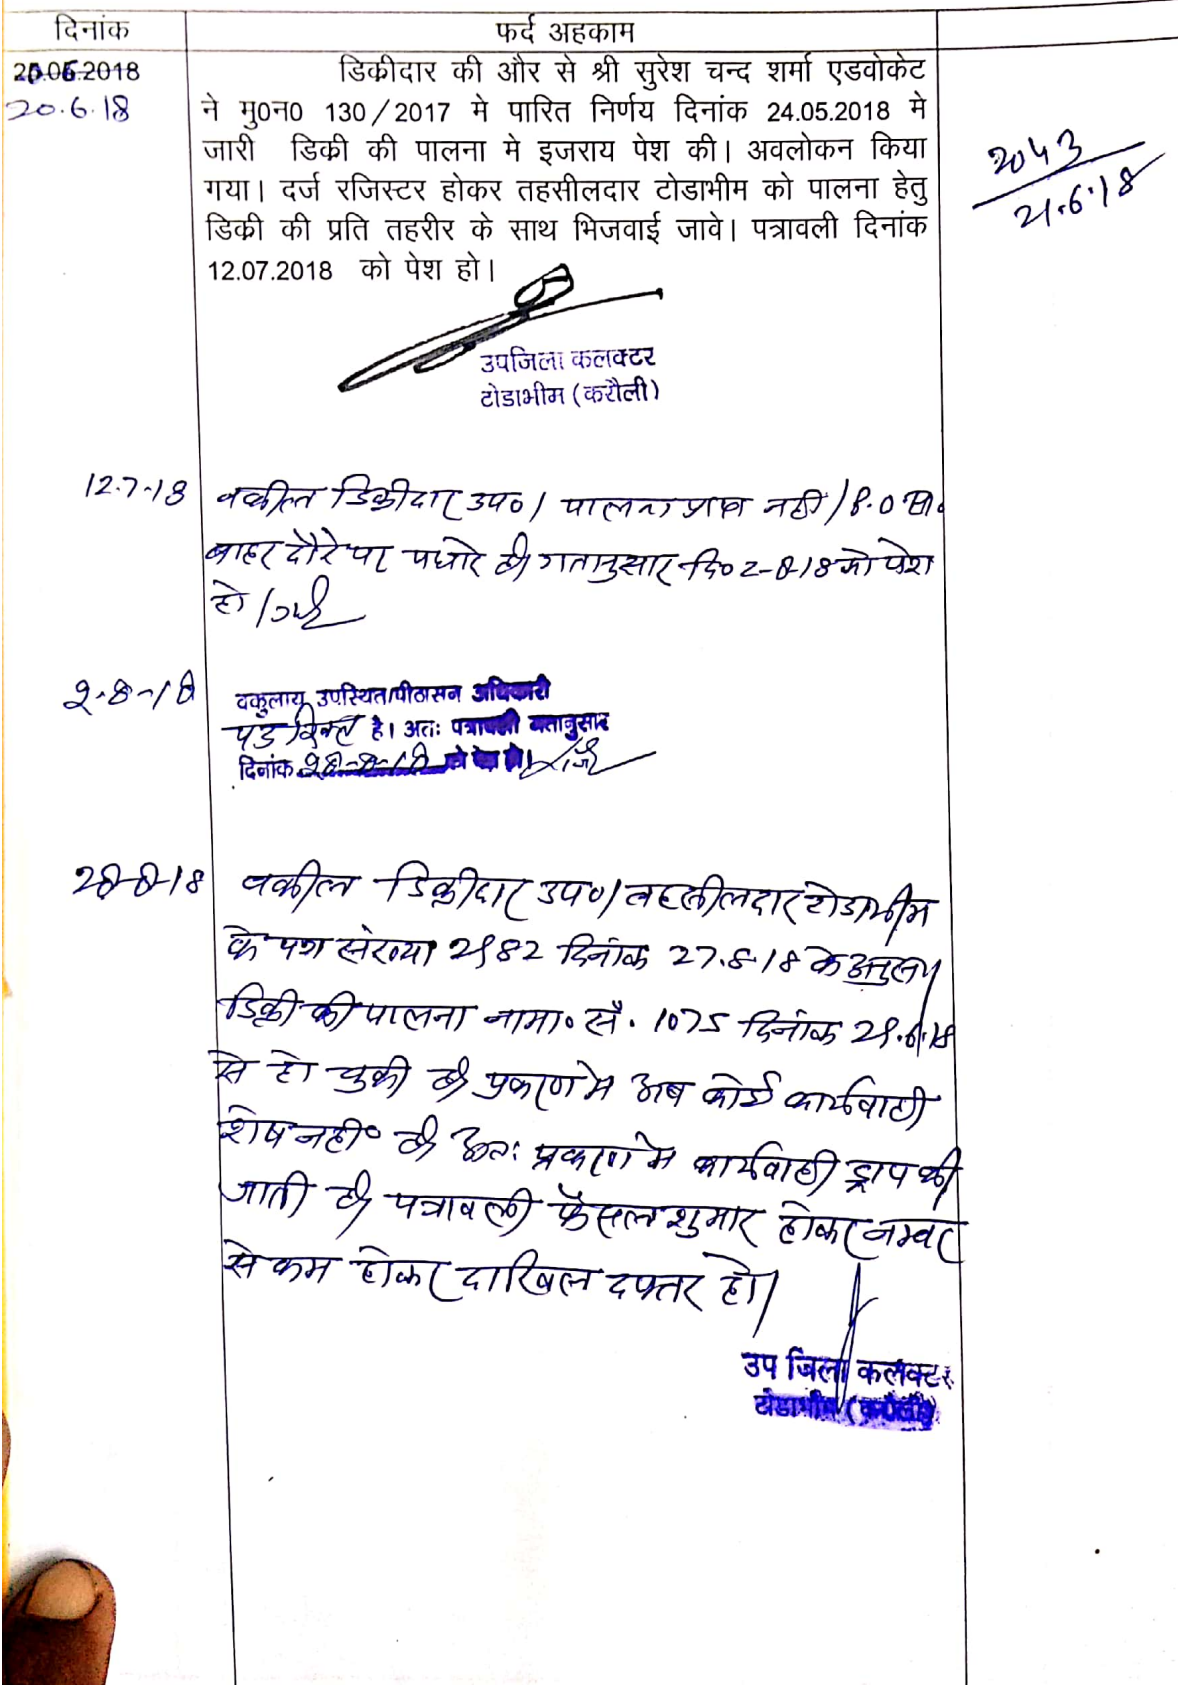 दिनांक
फर्द अहकाम
20.06.2018
20.6.18
डिकीदार की और से श्री सुरेश चन्द शर्मा एडवोकेट
ने मु0न0 130/2017 मे पारित निर्णय दिनांक 24.05.2018 मे
जारी डिकी की पालना मे इजराय पेश की। अवलोकन किया
गया। दर्ज रजिस्टर होकर तहसीलदार टोडाभीम को पालना हेतु
डिकी की प्रति तहरीर के साथ भिजवाई जावे। पत्रावली दिनांक
12.07.2018 को पेश हो।
2043
21.6.18
उपजिला कलक्टर
टोडाभीम (करौली)
12.7.18
वकील डिक्रीदार उप०। पालना प्राप्त नही। P.O सा.
बाहर दौरे पर पधारे है। गतानुसार दि० 2-8-18 को पेश
हो।
2-8-18
वकुलाय उपस्थित।पीठासन अधिकारी
है। अतः पत्रावली गतानुसार
दिनांक 28-8-18 को पेश हो।
28-8-18
वकील डिक्रीदार उप०। तहसीलदार टोडाभीम
के पत्र संख्या 2982 दिनांक 27.8.18 के अनुसार
डिक्री की पालना नामा० सं. 1075 दिनांक 29.6.18
से हो चुकी है। प्रकरण मे अब कोई कार्यवाही
शेष नही है। अतः प्रकरण मे कार्यवाही ड्राप की
जाती है। पत्रावली फैसल शुमार होकर नम्बर
से कम होकर दाखिल दफ्तर हो।
उप जिला कलक्टर
टोडाभीम (करौली)